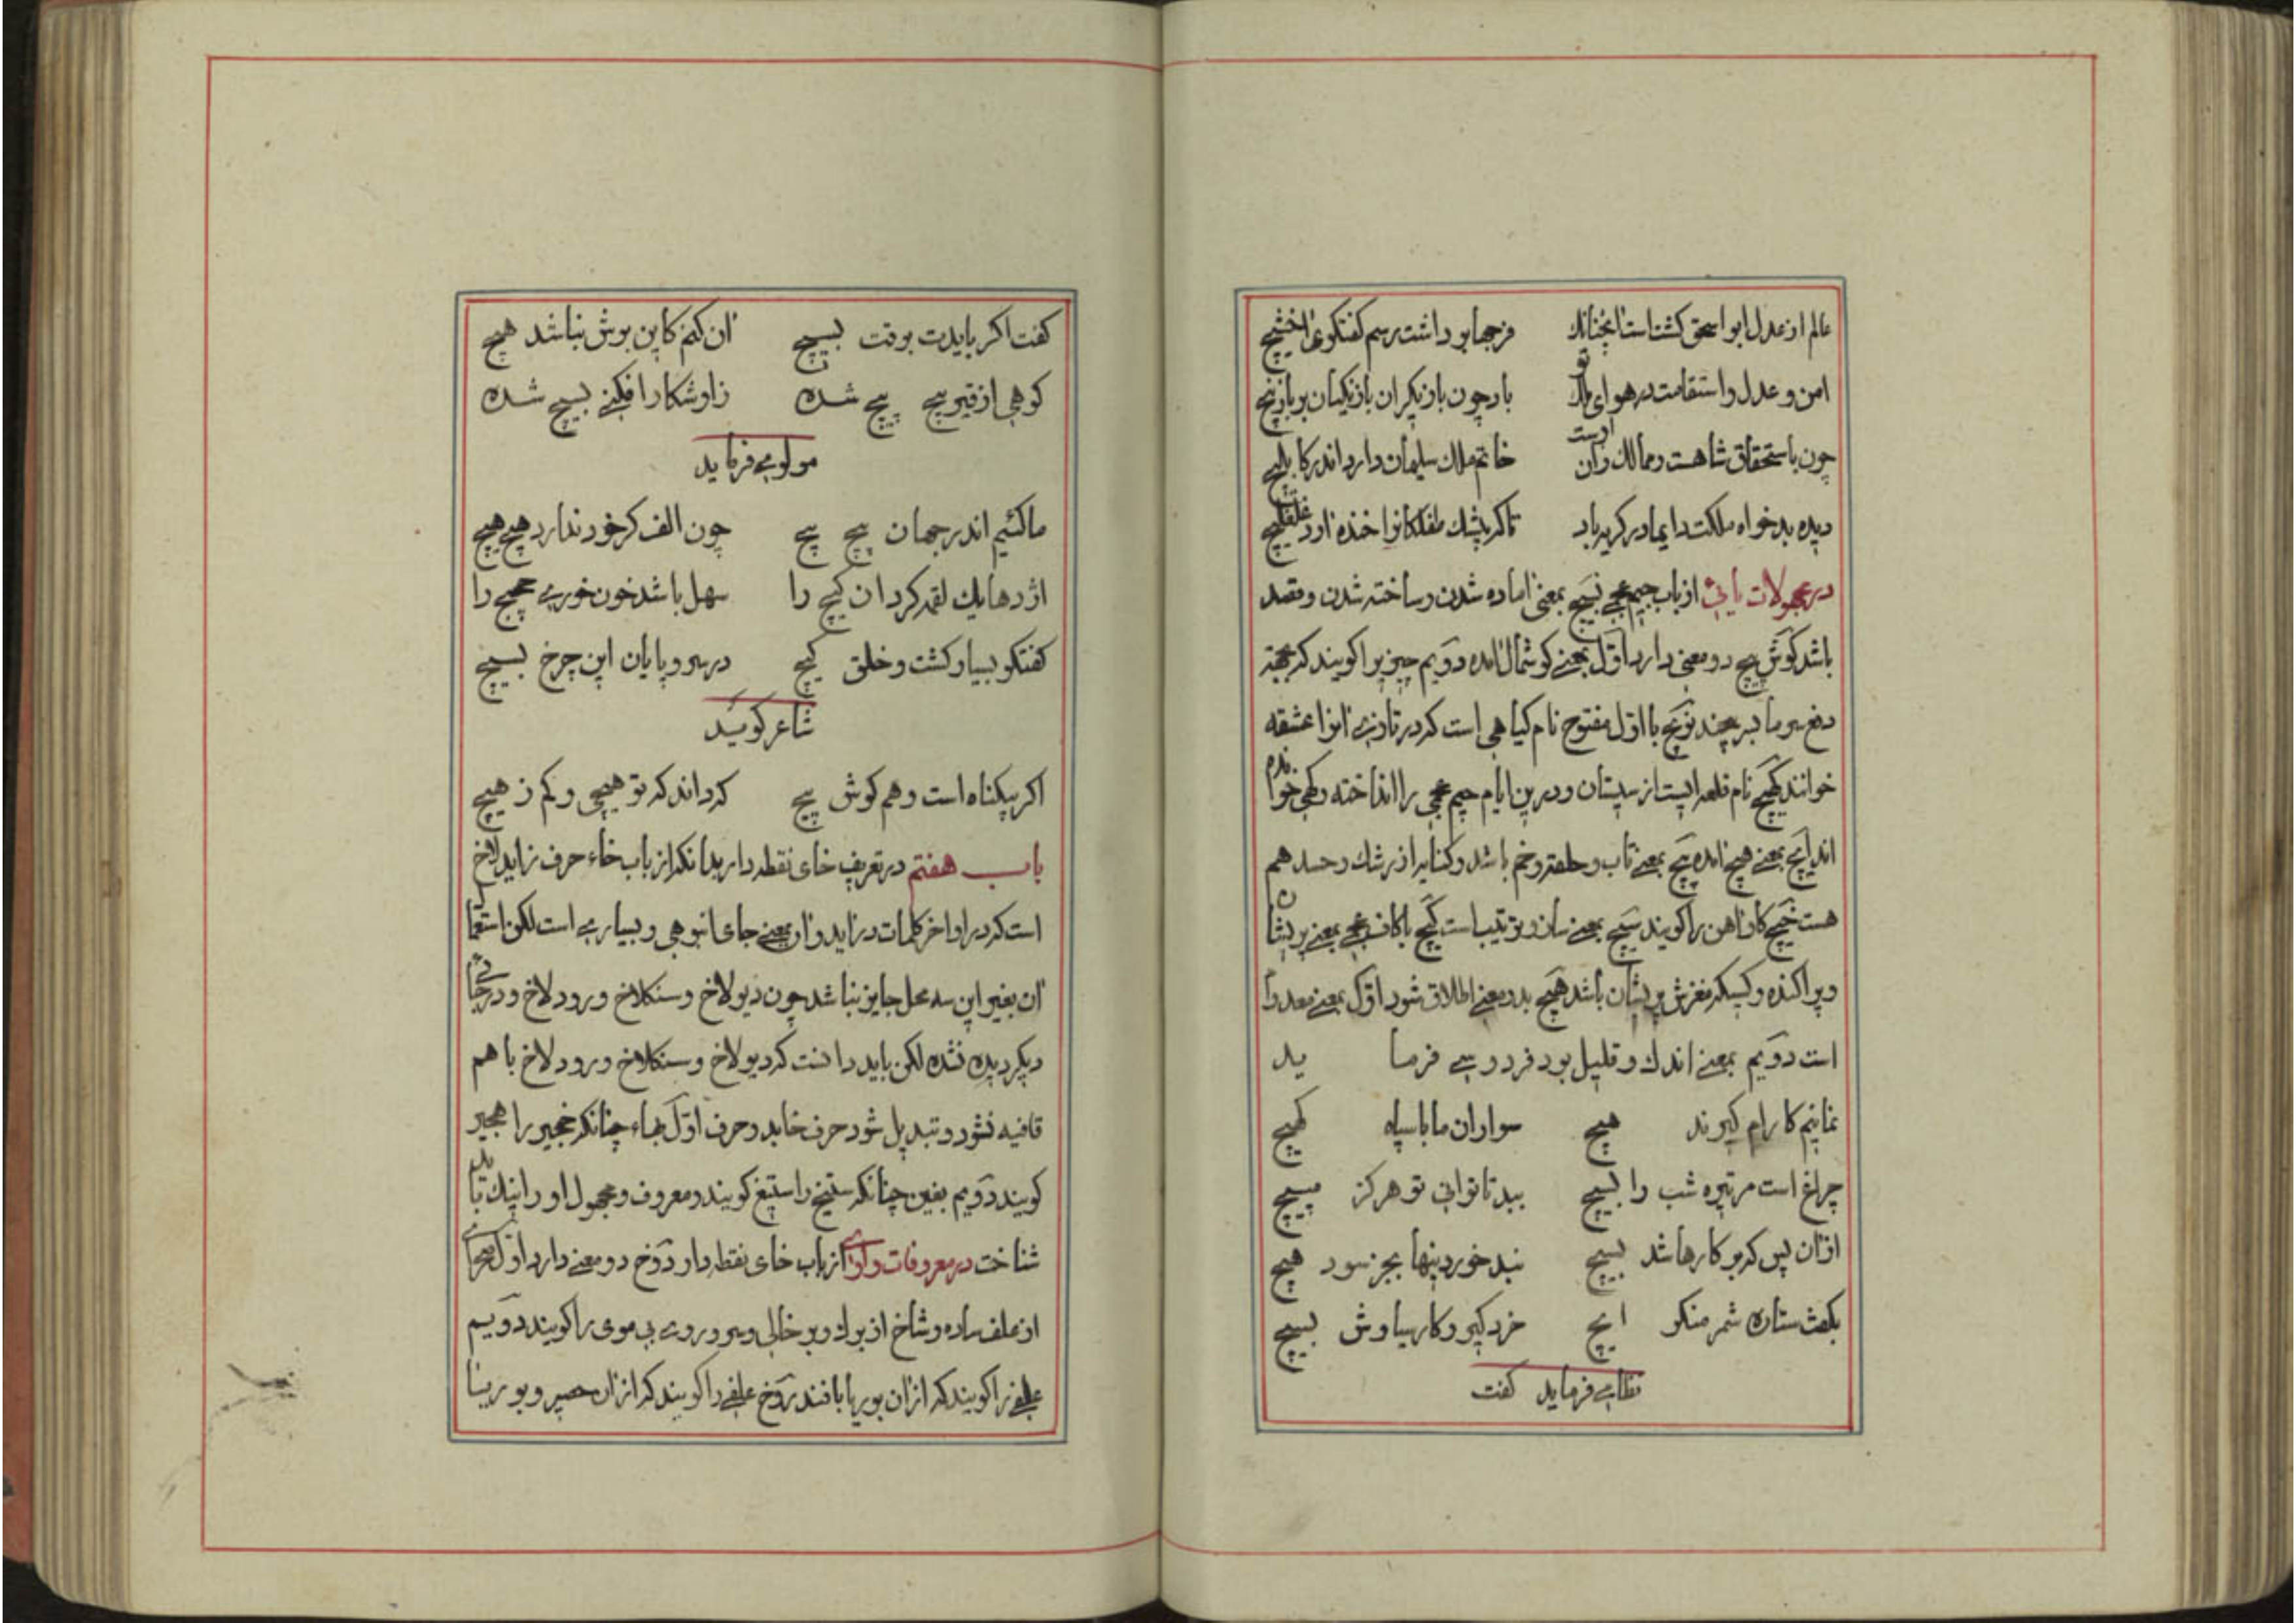 عالم از عدل ابو اسحق كشتاست انچنانك فرجها بو داشت رسم كفتكوى اخشیج
امن و عدل و استقامت در هوای ملك تو باد چون بازیكران بازیكنان بر بازنیج
چون باستحقاق شاهست و ممالك زان اوست خاتم ملك سلیمان دارد اندر كابلیج
دیده بدخواه ملكت دایما در كریه باد تا كه پشك طفلكانرا خنده اورد غلغلیج
در مجهولات یائی از باب جیم عجمی بسیچ بمعنی اماده شدن و ساخته شدن و قصد
باشد كوش پیچ دو معنی دارد اول بمعنی كوشمال امده دویم چیزیرا كویند كه بجهته
دفع سرما بر پیچند نویچ با اول مفتوح نام كیاهی است كه در تازی انرا عشقه
خوانند كهیچ نام قلعه ایست از سیستان و درین ایام جیم عجمی را انداخته و كهی خوانده
اند ایچ بمعنی هیچ امده پیچ بمعنی تاب و حلقه و خم باشد و كنایه از رشك و حسد هم
هست خیچ كاو اهن را كویند سیچ بمعنی سان و ترتیب است كیچ با كاف عجمی بمعنی پریشان
و پراكنده و كسیكه مغزش پریشان باشد هیچ بدو معنی اطلاق شود اول بمعنی معدوم
است دویم بمعنی اندك و قلیل بود فردوسی فرماید
نمانیم كارام كیرند هیچ سواران ما با سپاه كهیچ
چراغ است مر تیره شب را بسیچ ببد تا توانی تو هركز مپیچ
ازان پس كه بر كارها شد بسیچ نبد خوردنیها بجز سود هیچ
بكفت ستاره شمر منكر ایچ خرد كیر و كار سیاوش بسیچ
نظامی فرماید كفت
كفت اكر بایدت بوقت بسیچ ان كنم كاین برش نباشد هیچ
كوهی از قیر پیچ پیچ شده زاو شكار افكنی بسیچ شده
مولوی فرماید
ما كئیم اندر جهان پیچ پیچ چون الف كر خود ندارد هیچ هیچ
اژدها یك لقمه كرد ان كیچ را سهل باشد خون خوری حجیج را
كفتكو بسیار كشت و خلق كیچ در سر و پایان این چرخ بسیچ
شاعر كوید
اكر بیكناه است و هم كوش پیچ كه داند كه تو هیچی و كم ز هیچ
باب هفتم در تعریف خای نقطه دار بدانكه از باب خاء حرف زاید لاخ
است كه در اواخر كلمات دراید و ان بمعنی جای انبوهی و بسیاری است لكن استعمال
ان بغیر این سه محل جایز نباشد چون دیولاخ و سنكلاخ و رودلاخ و در جائی
دیكر دیده نشده لكن باید دانست كه دیولاخ و سنكلاخ و رودلاخ با هم
قافیه نشود و تبدیل شود حرف خا بدو حرف اول بهاء چنانكه خجیر را هجیر
كویند دویم بغین چنانكه ستیخ را ستیغ كویند و معروف و مجهول او را نیك باید
شناخت در معروفات واوی از باب خای نقطه دار دوخ دو معنی دارد اول صحرای
از علف ساده و شاخ از برك و بر خالی و سر و روی بی موی را كویند دویم
علفی را كویند كه از ان بوریا بافند روخ علفی را كویند كه از ان حصیر و بوریا